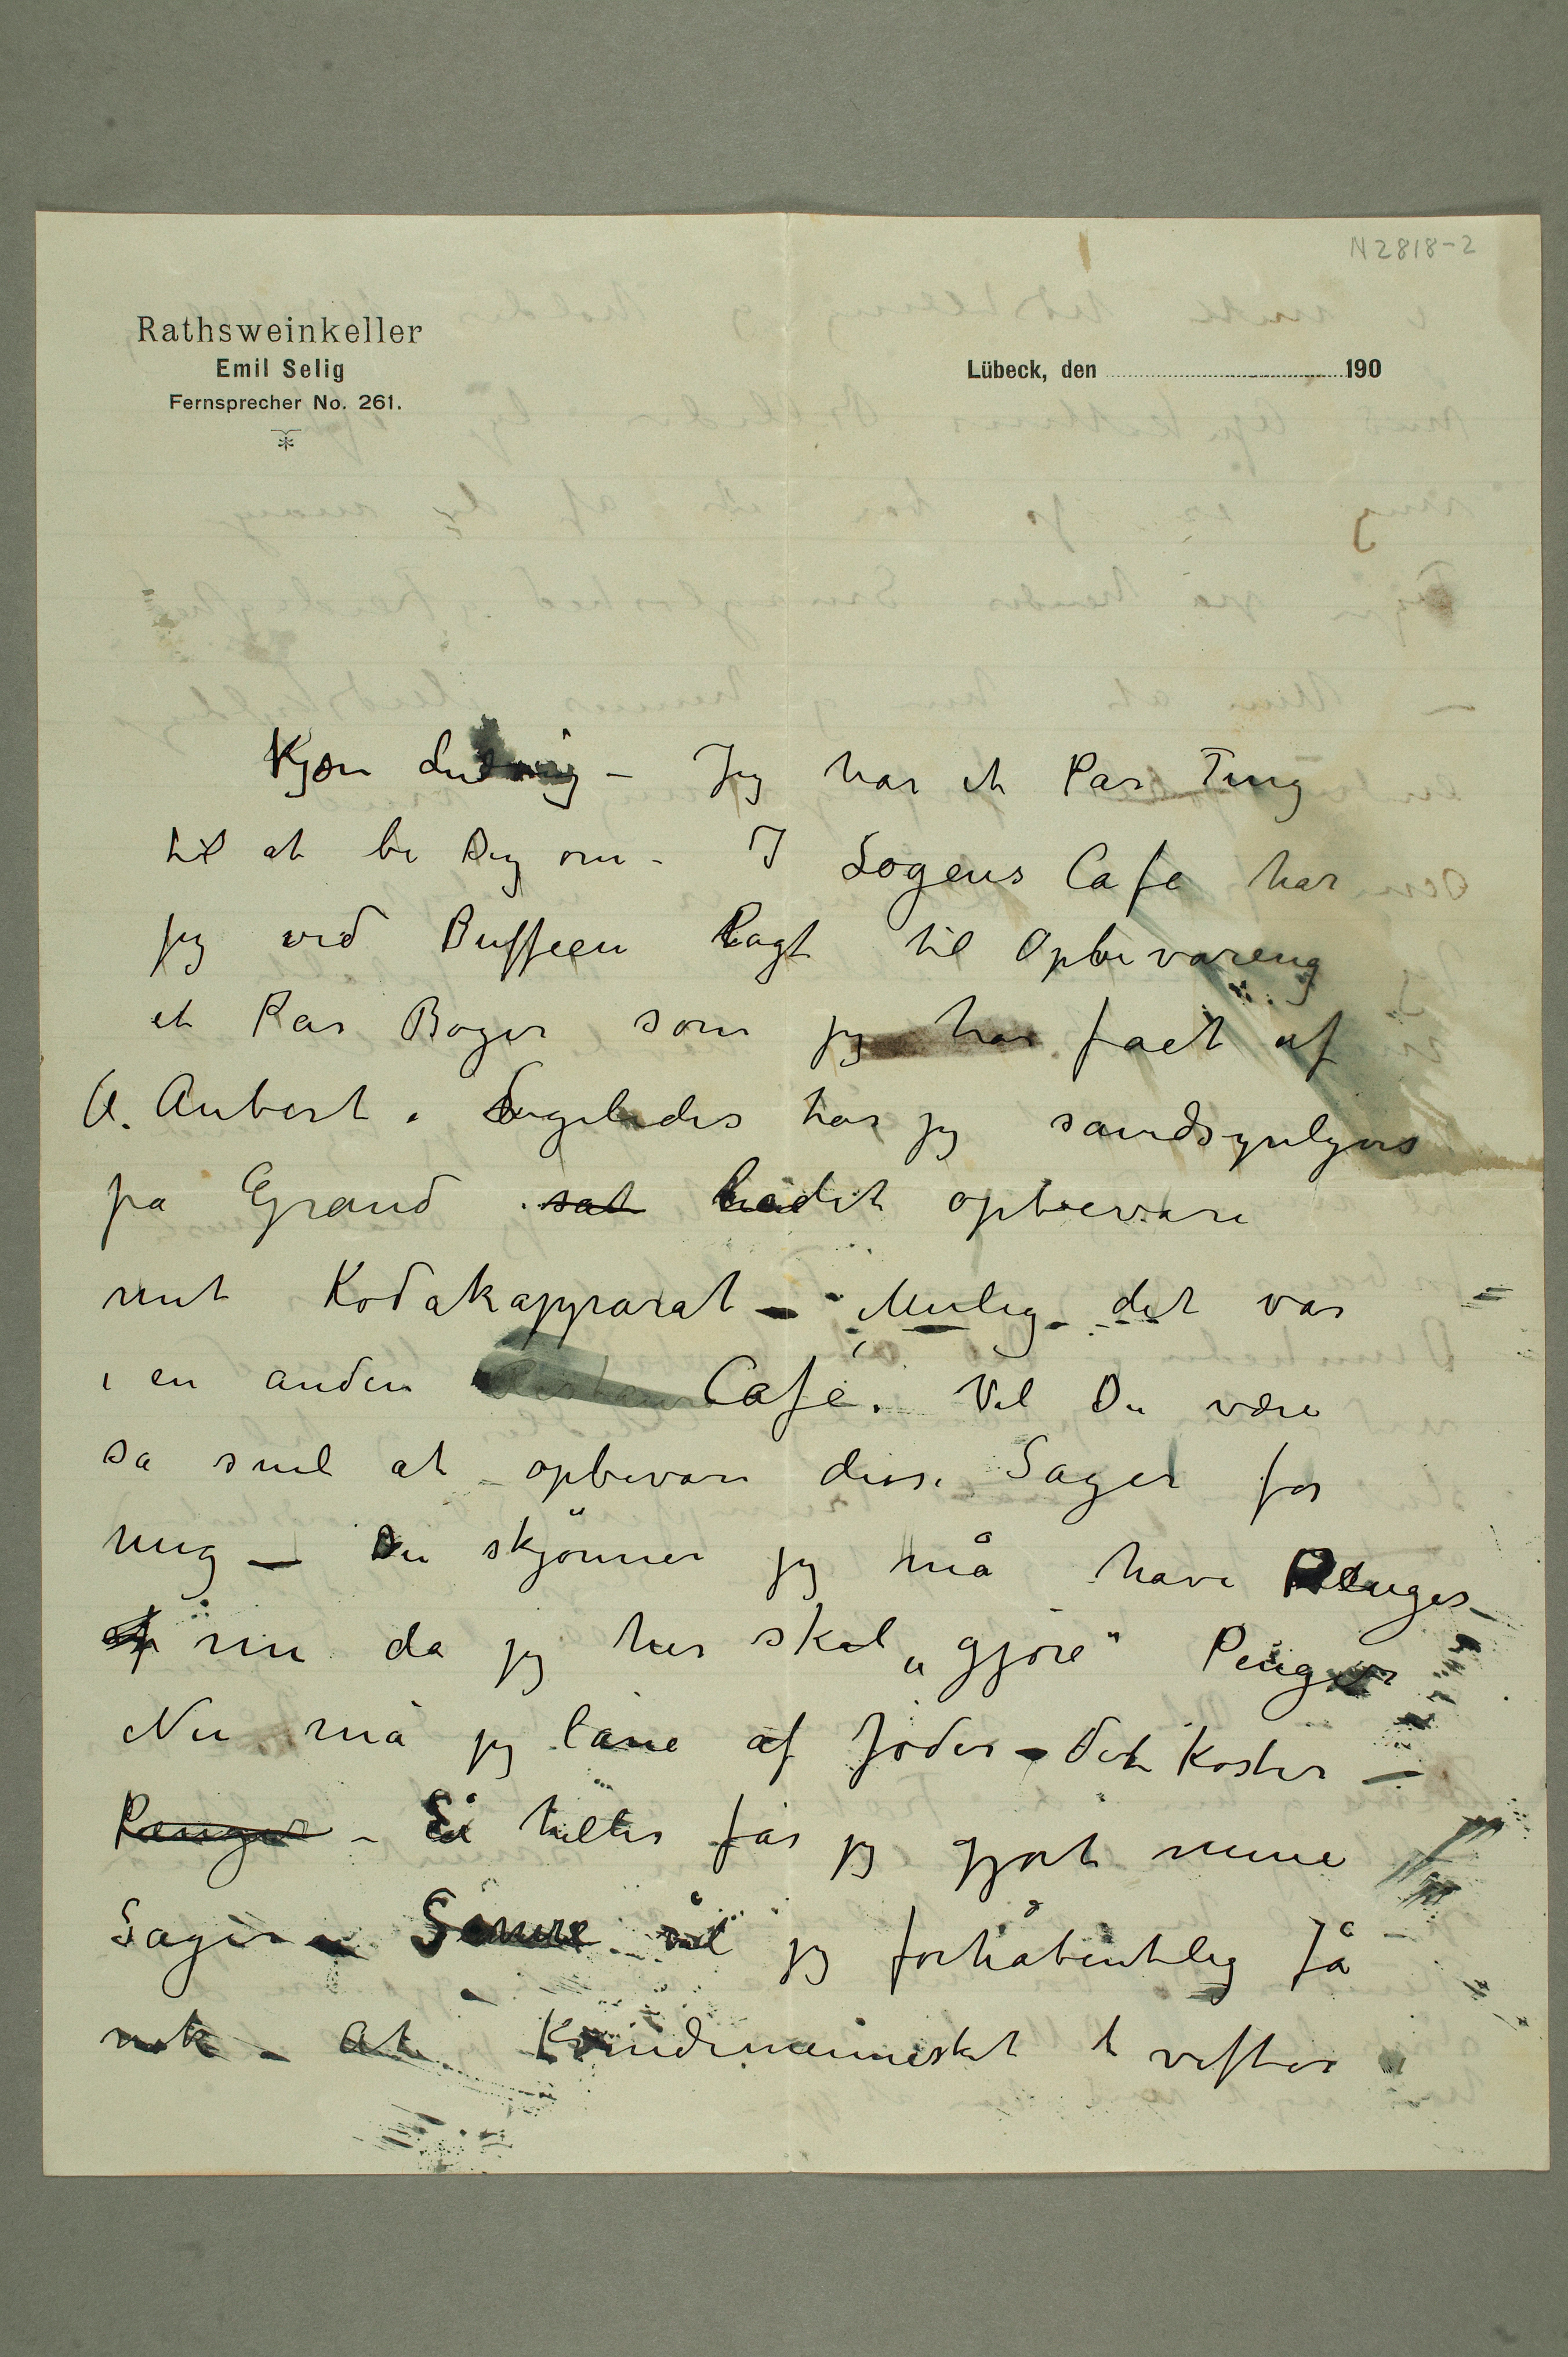 N 2818-2
Rathsweinkeller
Emil Selig
Fernsprecher No. 261.
Lübeck, den 190
Kjære Ludvig – Jeg har et Par Ting
til at be Dig om – I Logens Cafe har
jeg ved Buffeen lagt til Opbevaring
et Par Bøger som jeg har faet af
A. Aubert. Ligeledes har jeg sandsynligvis
på Grand sat bedet opbevare
mit Kodakapparat – Mulig det var
i en anden Restaur Café. Vil Du være
så snil at opbevare disse Sager for
mig – Du skjönner jeg må have Penger –
af nu da jeg her skal „gjøre" Penger
Nu må jeg låne af Jøder – det koster –
Penger – Ei heller får jeg gjort mine
Sager – Senere vil jeg forhåbentlig få
nok – At Kvindemennesket